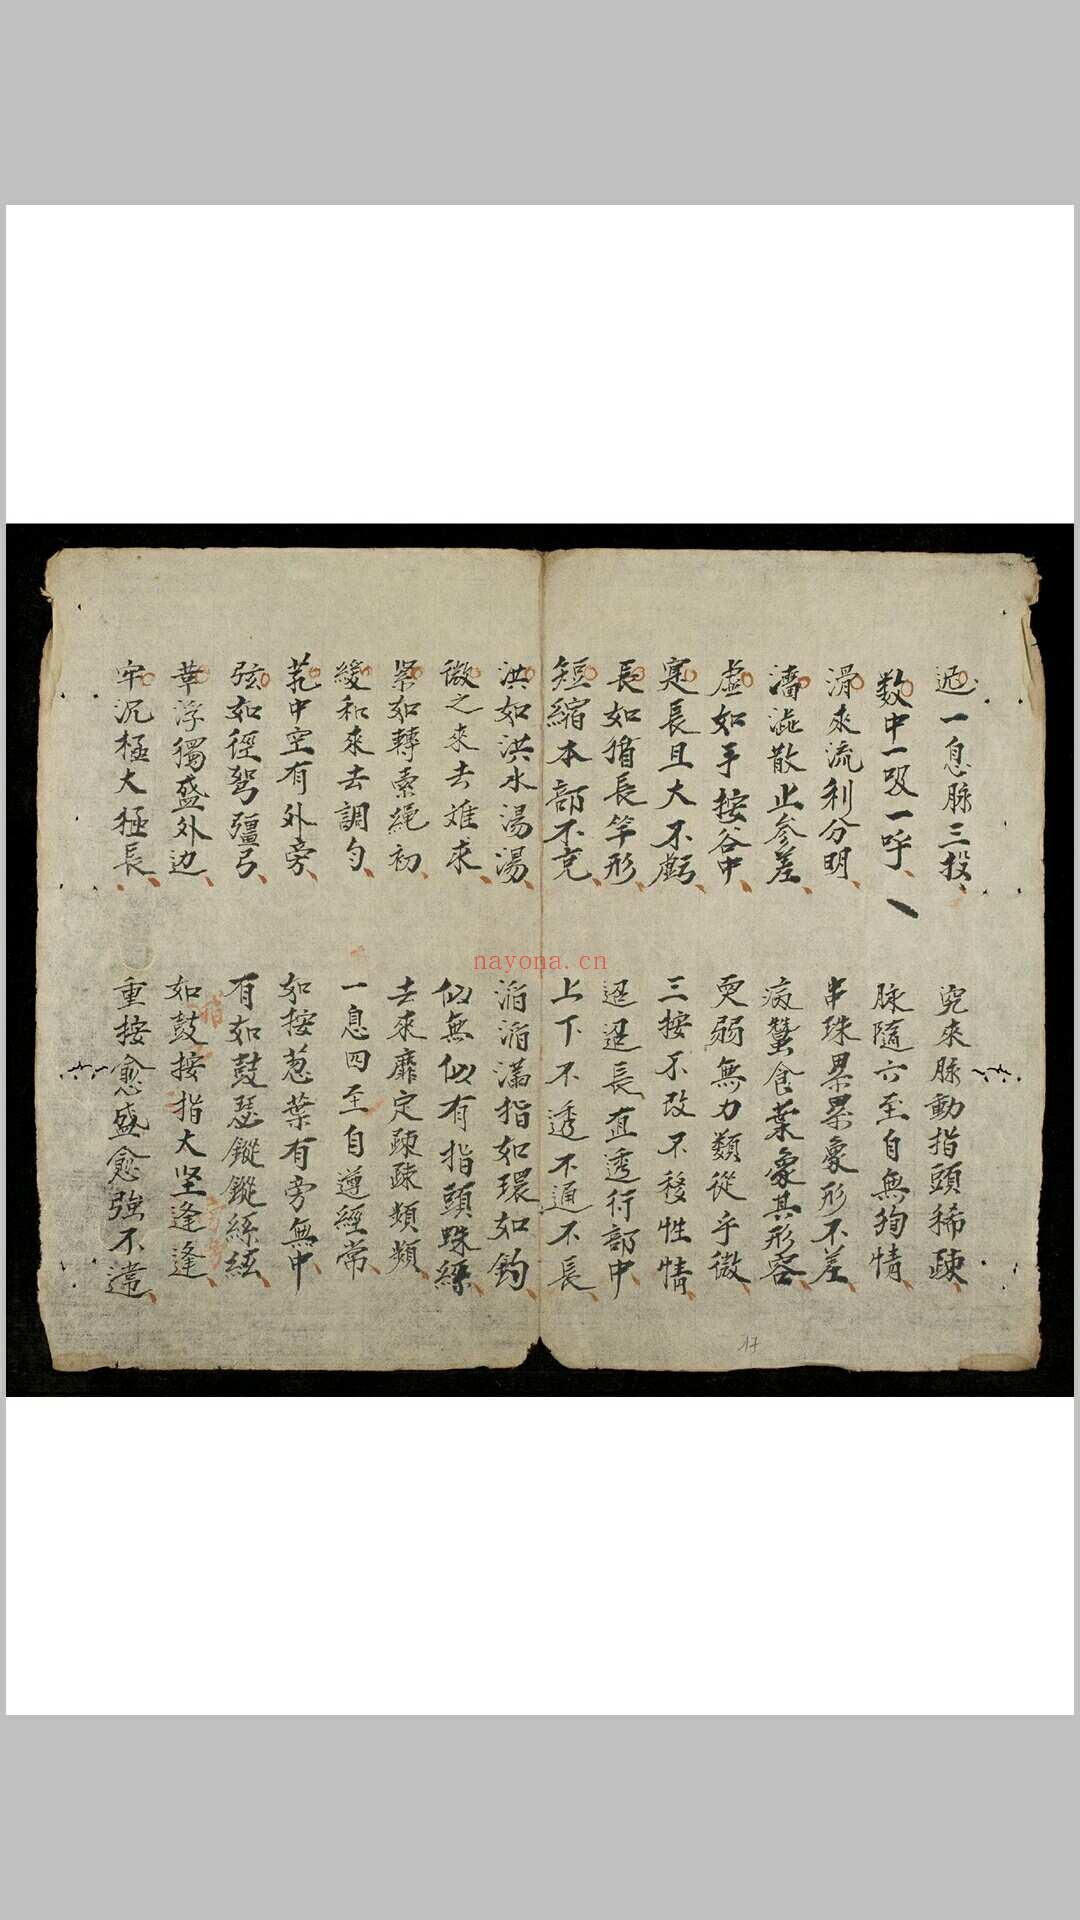 迟一息脉三投 究來脉動指頭稀踈
数中一吸一呼 脉隨六至自無狥情
滑來流利分明 串珠累累象形不差
濇澁散止参差 病蠶食葉象其形容
虛如手按谷中 更弱無力類從乎微
寔長且大不虧 三按不改不移性情
長如循長竿形 迢迢長直透行部中
短縮本部不充 上下不透不通不長
洪如洪水湯湯 滔滔滿指如環如鈎
微之來去难求 似無似有指頭蛛絲
紧如轉索繩初 去來靡定踈踈類類
緩和來去調勻 一息四至自遵經常
芤中空有外旁 如按葱葉有旁無中
弦如徑弩彊弓 有如鼓瑟鏦鏦絲絃
革浮獨盛外边 如鼓按指大坚逢逢
牢沉極大極長 重按愈盛愈強不常
17
nayona.cn